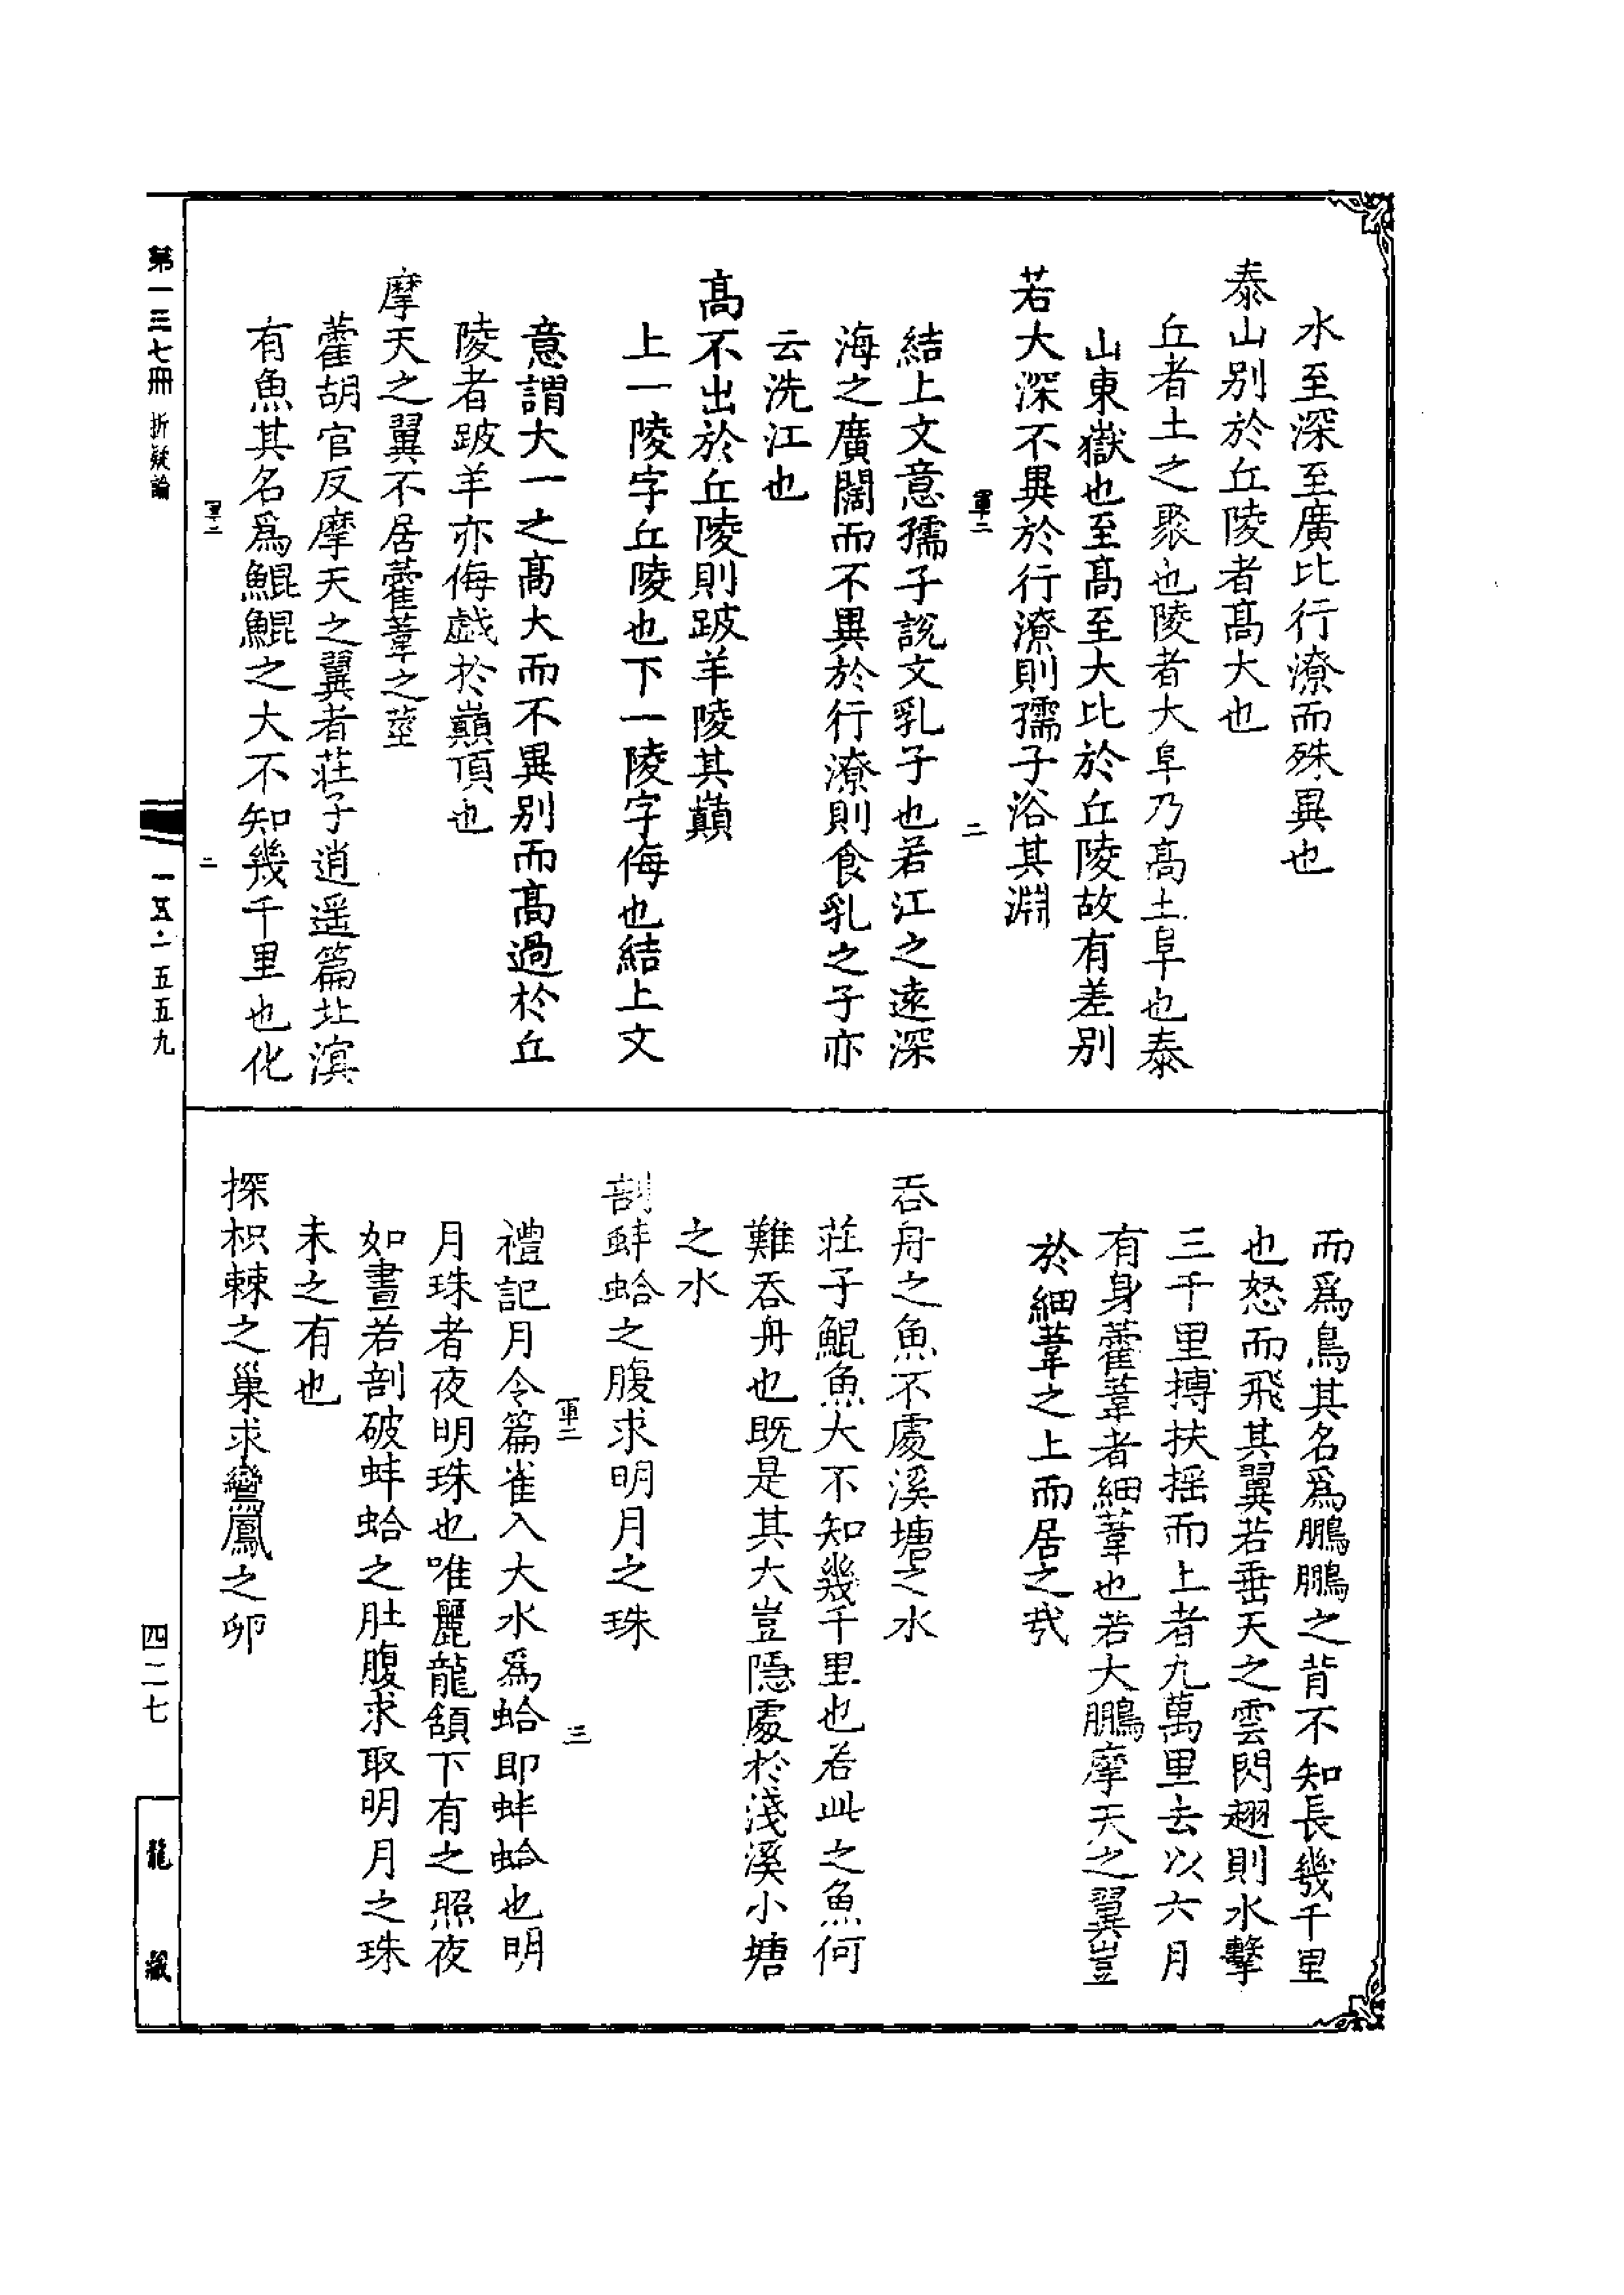 水至深至廣比行潦而殊異也
泰山別於丘陵者髙大也
丘者土之聚也陵者大阜乃髙土阜也泰
山東嶽也至髙至大比於丘陵故有差別
若大深不異於行潦則孺子浴其淵
軍二
二
結上文意孺子說文乳子也若江之遠深
海之廣闊而不異於行潦則食乳之子亦
云洗江也
髙不出於丘陵則跛羊陵其巔
上一陵字丘陵也下一陵字侮也結上文
意謂大一之髙大而不異別而髙過於丘
陵者跛羊亦侮戲於巔頂也
摩天之翼不居藿葦之莖
藿胡官反摩天之翼者莊子逍遥篇北溟
有魚其名爲鯤鯤之大不知幾千里也化
軍二
二
而爲鳥其名爲鵬鵬之背不知長幾千里
也怒而飛其翼若垂天之雲閃翅則水擊
三千里摶扶摇而上者九萬里去以六月
有身藿葦者細葦也若大鵬摩天之翼豈
於細葦之上而居之哉
吞舟之魚不處溪塘之水
莊子鯤魚大不知幾千里也若此之魚何
難吞舟也既是其大豈隱處於淺溪小塘
之水
剖蚌蛤之腹求明月之珠
軍二
三
禮記月令篇雀入大水爲蛤即蚌蛤也明
月珠者夜明珠也唯麗龍頷下有之照夜
如晝若剖破蚌蛤之肚腹求取明月之珠
未之有也
探枳棘之巢求鸞鳳之卵
第一三七冊 折疑論
一五二·五五九
四二七
龍藏